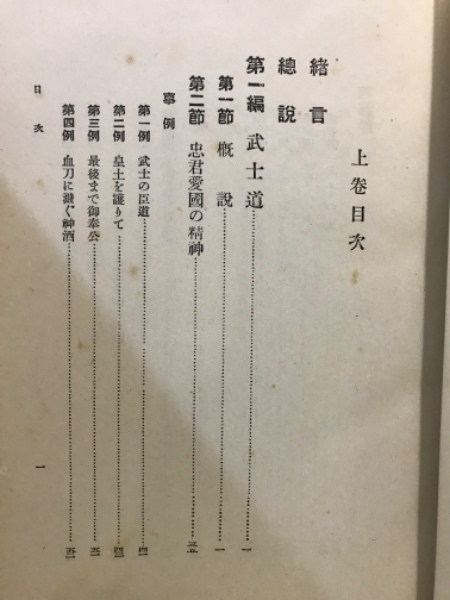 上卷目次
緒言
總說
第一編 武士道……一
第一節 概說……一
第二節 忠君愛國の精神……
事例
第一例 武士の臣道……
第二例 皇土を護りて……
第三例 最後まで御奉公……
第四例 血刀に灑ぐ神酒……
目次
一